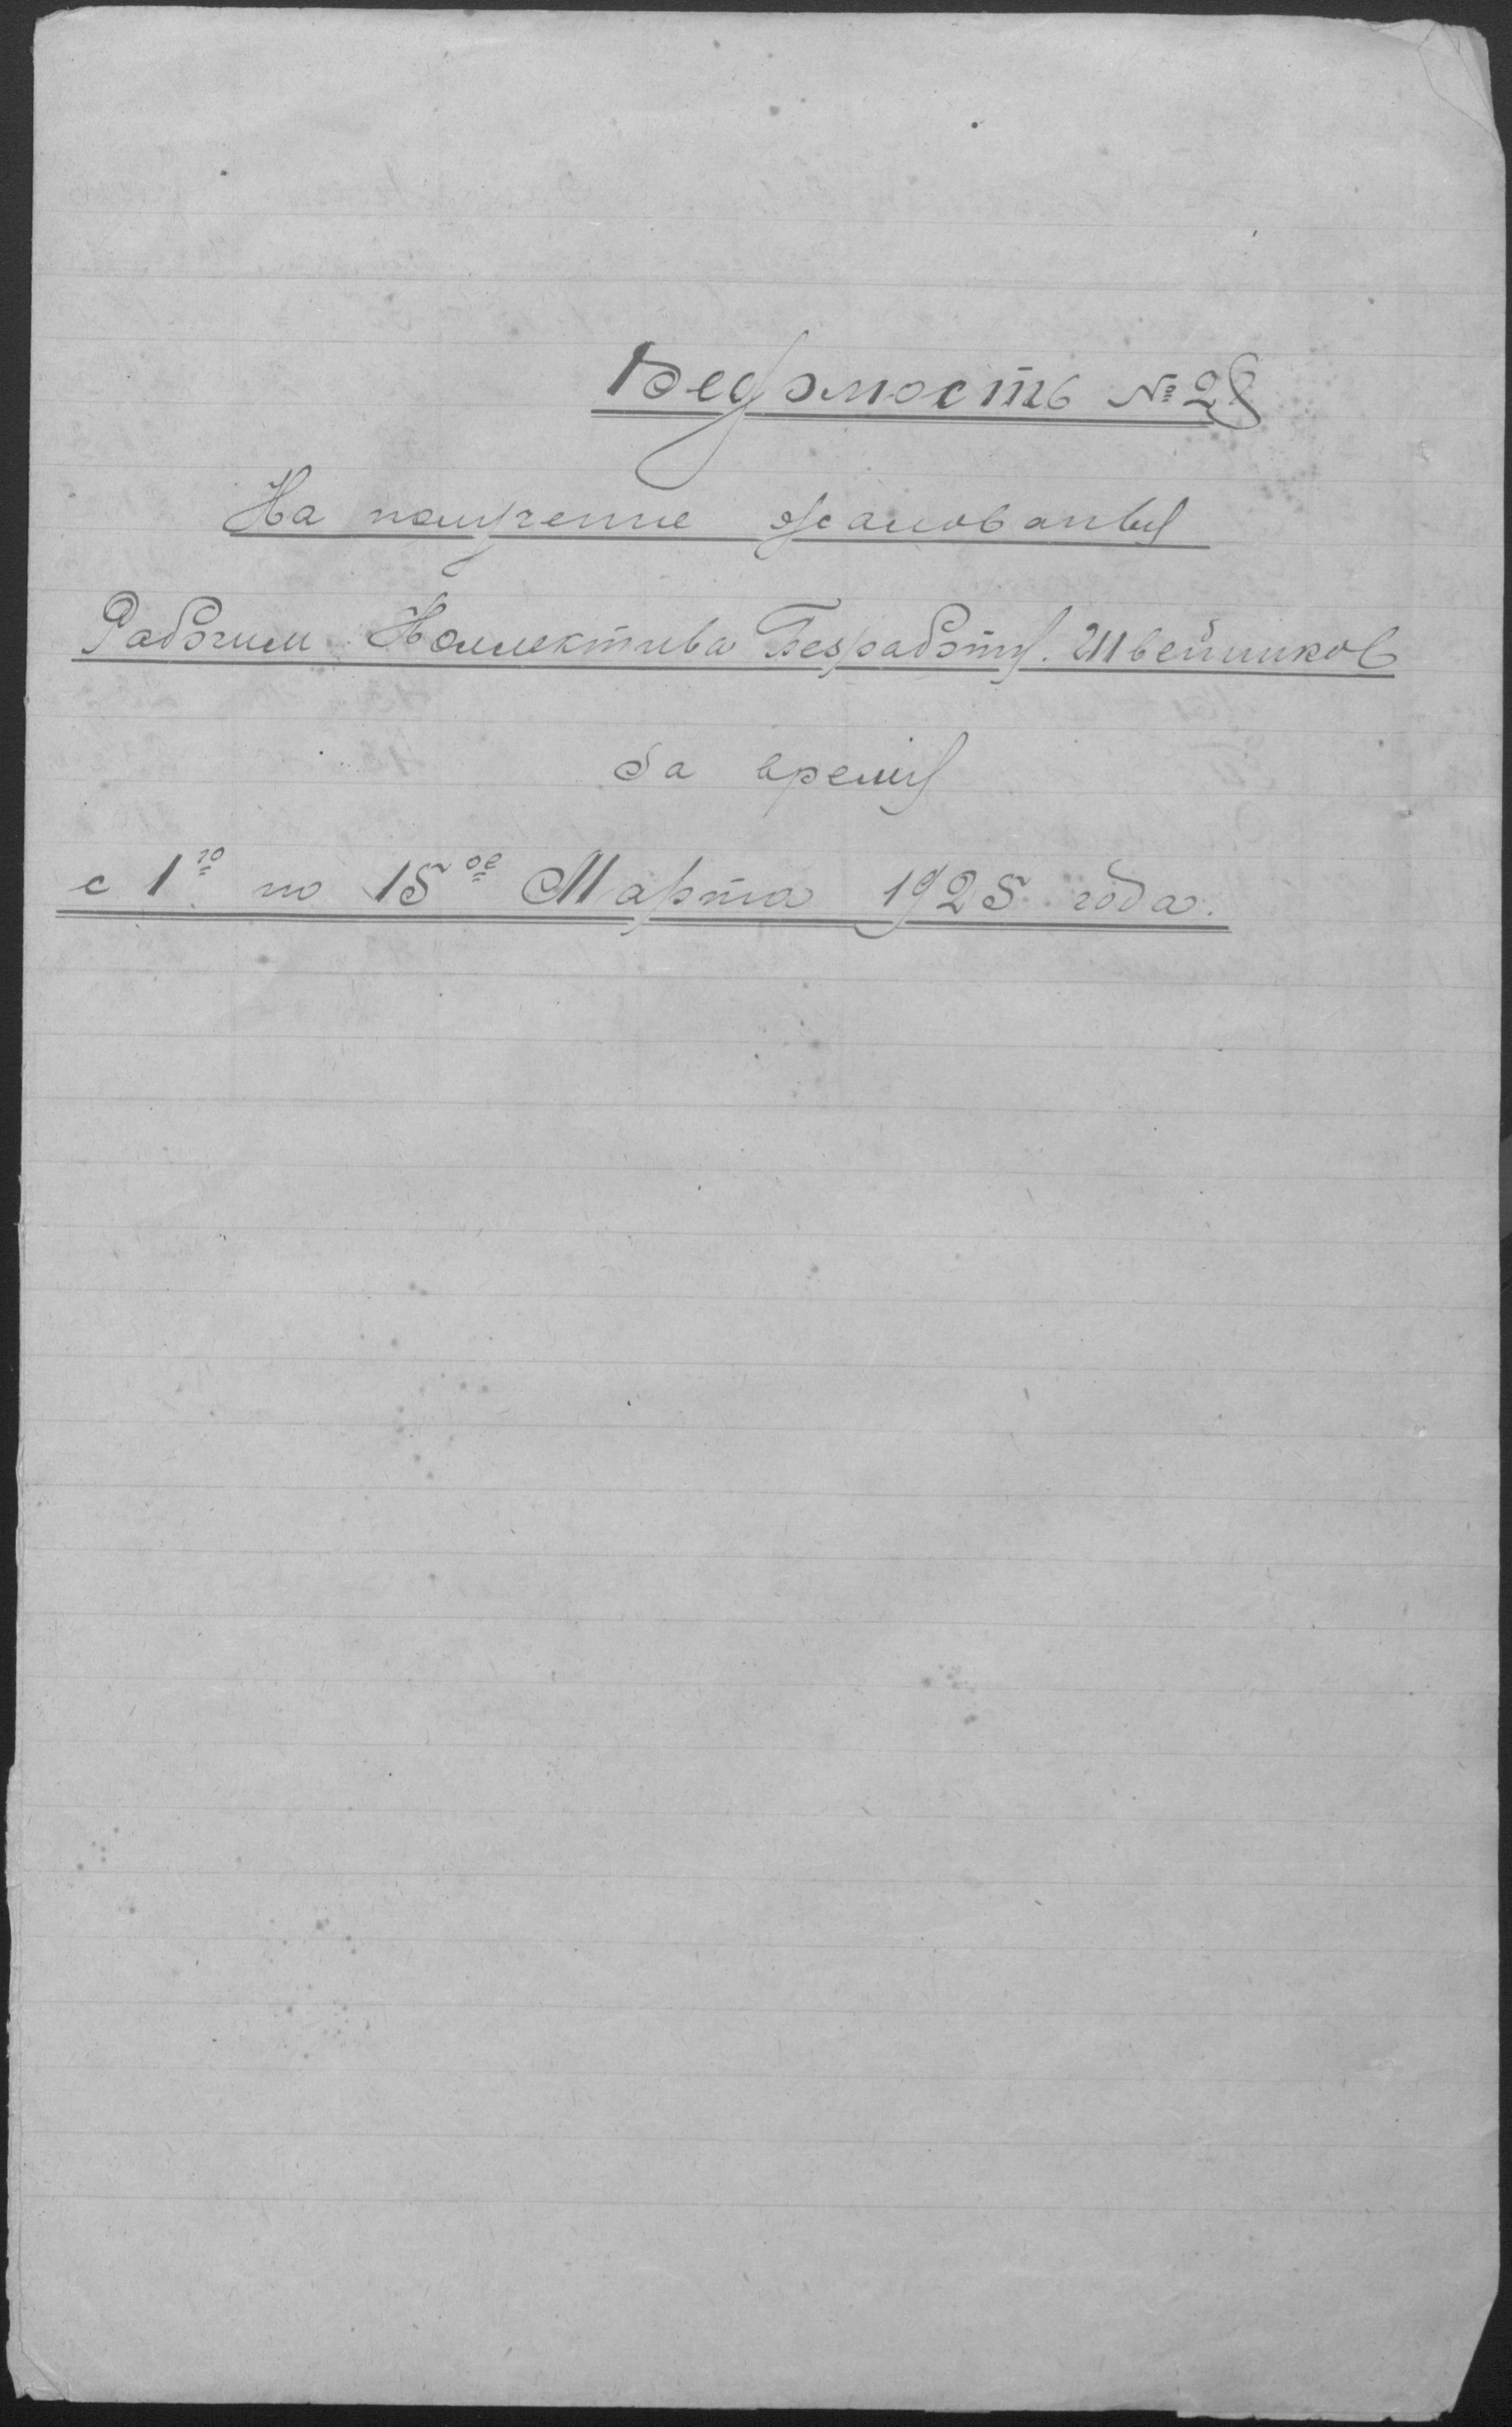 Ведомость № 28
На получение жалованья
Рабочим Коллектива Безработн. Швейников
За время
с 1го по 15ое Марта 1925 года.